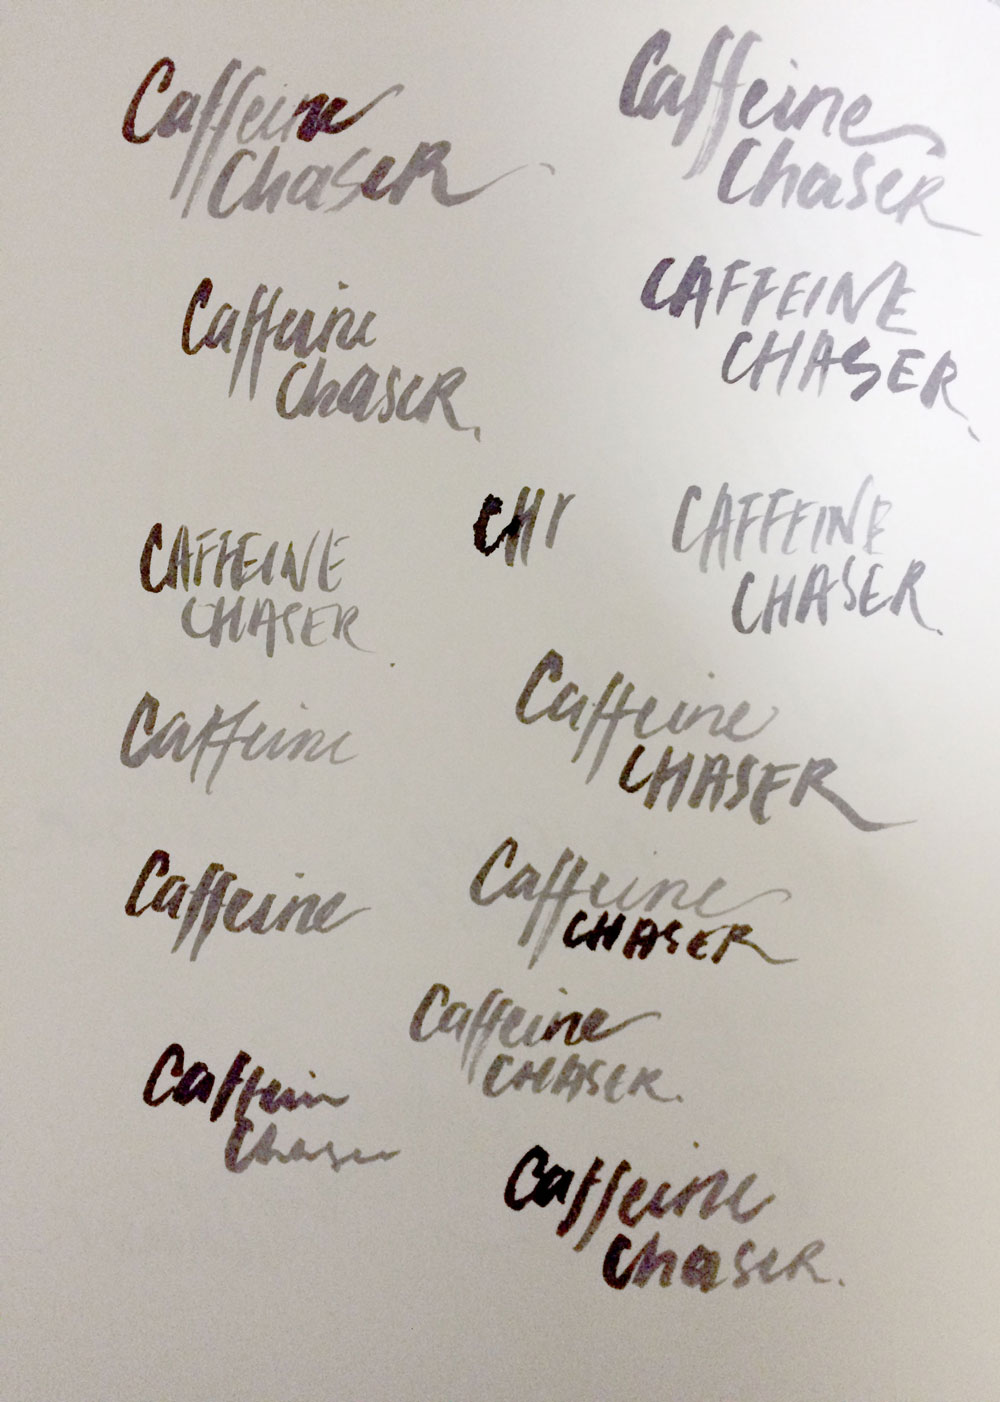 Caffeine
ChaseR
Caffeine
ChaseR
Caffeine
ChaseR.
CAFFEINE
CHASER.
CAFFEINE
CHASER
CHI
CAFFEINE
CHASER.
Caffeine
Caffeine
CHASER
Caffeine
Caffeine
CHASER
Caffeine
CHASER.
Caffein
Chaser
Caffeine
ChaseR.